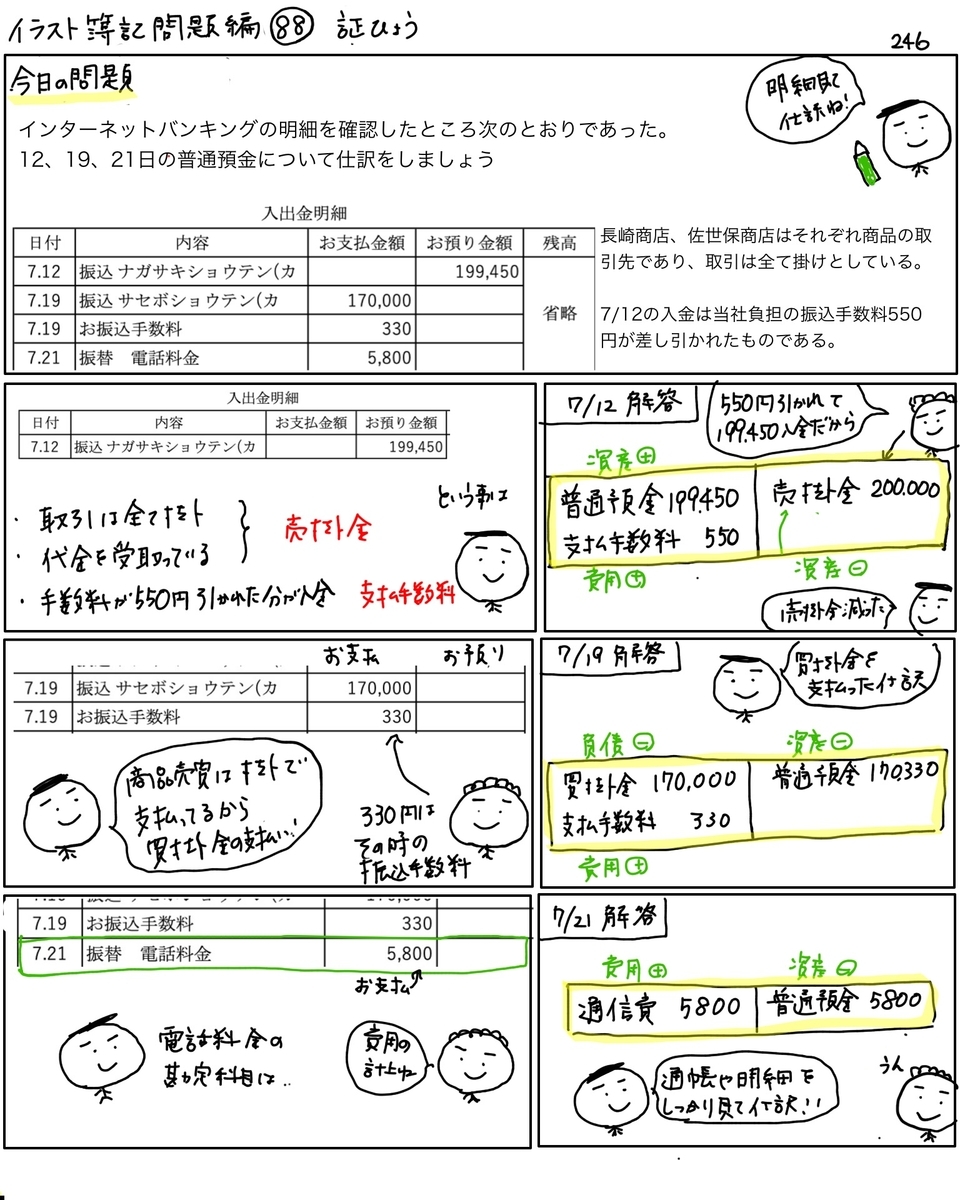 イラスト簿記問題編 88 証ひょう
246
今日の問題
明細見て
仕訳ね!
インターネットバンキングの明細を確認したところ次のとおりであった。
12、19、21日の普通預金について仕訳をしましょう
入出金明細
日付 内容 お支払金額 お預り金額 残高
7.12 振込 ナガサキショウテン(カ 199,450
7.19 振込 サセボショウテン(カ 170,000
省略
7.19 お振込手数料 330
7.21 振替 電話料金 5,800
長崎商店、佐世保商店はそれぞれ商品の取
引先であり、取引は全て掛けとしている。
7/12の入金は当社負担の振込手数料550
円が差し引かれたものである。
入出金明細
日付 内容 お支払金額 お預り金額
7.12 振込 ナガサキショウテン(カ 199,450
という事は
・取引は全て掛け
・代金を受取っている
売掛金
・手数料が550円引かれた分が入金 支払手数料
7/12 解答
550円引かれて
199,450入金だから
資産⊕
普通預金 199,450 売掛金 200,000
支払手数料 550
費用⊕ 資産⊖
売掛金減った
お支払 お預り
7.19 振込 サセボショウテン(カ 170,000
7.19 お振込手数料 330
商品売買は掛けで
支払ってるから
買掛金の支払い!
330円は
その時の
振込手数料
7/19 解答
買掛金を
支払った仕訳
負債⊖ 資産⊖
買掛金 170,000 普通預金 170330
支払手数料 330
費用⊕
7.19 お振込手数料 330
7.21 振替 電話料金 5,800
お支払
電話料金の
勘定科目は..
費用の
計上ね
7/21 解答
費用⊕ 資産⊖
通信費 5800 普通預金 5800
通帳や明細を
しっかり見て仕訳!!
うん